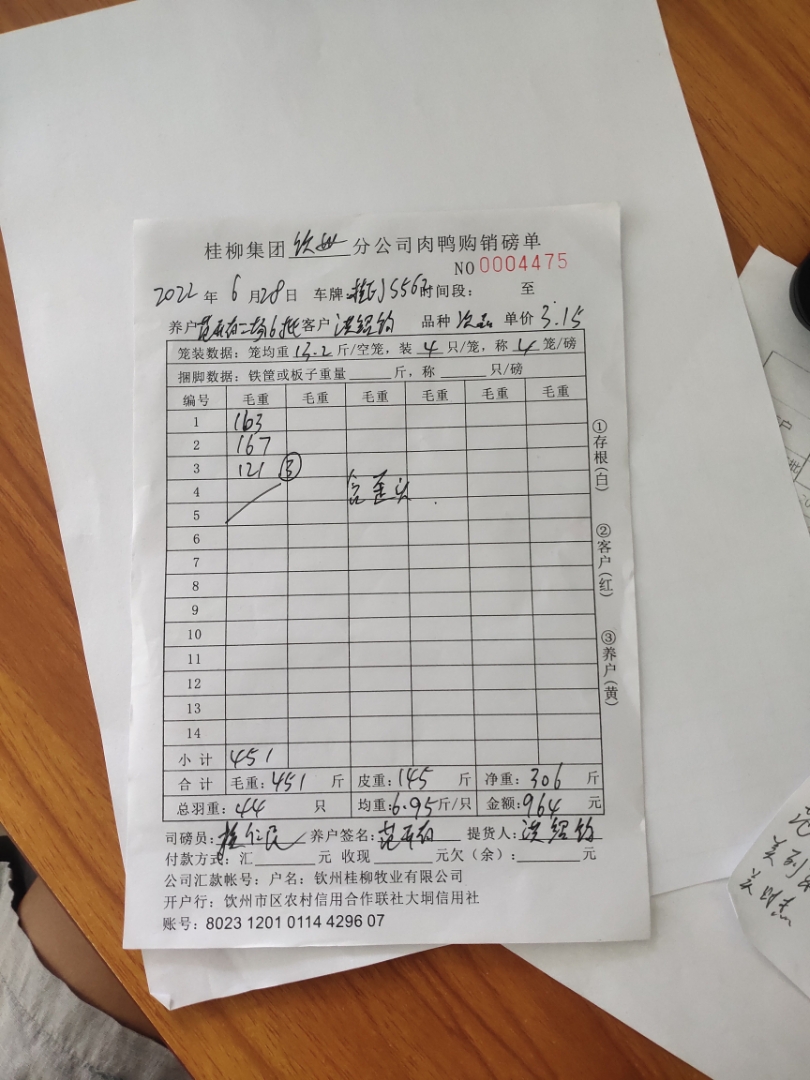 桂柳集团 钦州 分公司肉鸭购销磅单
NO 0004475
2022 年 6 月 28 日 车牌: 时间段: 至
养户 二场6批 客户 洪绍钧 品种 次品 单价 3.15
笼装数据: 笼均重 13.2 斤/空笼, 装 4 只/笼, 称 4 笼/磅
捆脚数据: 铁筐或板子重量 斤, 称 只/磅
编号 毛重 毛重 毛重 毛重 毛重 毛重
1 163
2 167
3 121 ③
4 含歪头
5
6
7
8
9
10
11
12
13
14
小计 451
合计 毛重: 451 斤 皮重: 145 斤 净重: 306 斤
总羽重: 44 只 均重: 6.95 斤/只 金额: 964 元
司磅员: 桂仁民 养户签名: 提货人: 洪绍钧
付款方式: 汇 元 收现 元欠(余): 元
公司汇款帐号: 户名: 钦州桂柳牧业有限公司
开户行: 钦州市区农村信用合作联社大垌信用社
账号: 8023 1201 0114 4296 07
①存根(白)
②客户(红)
③养户(黄)